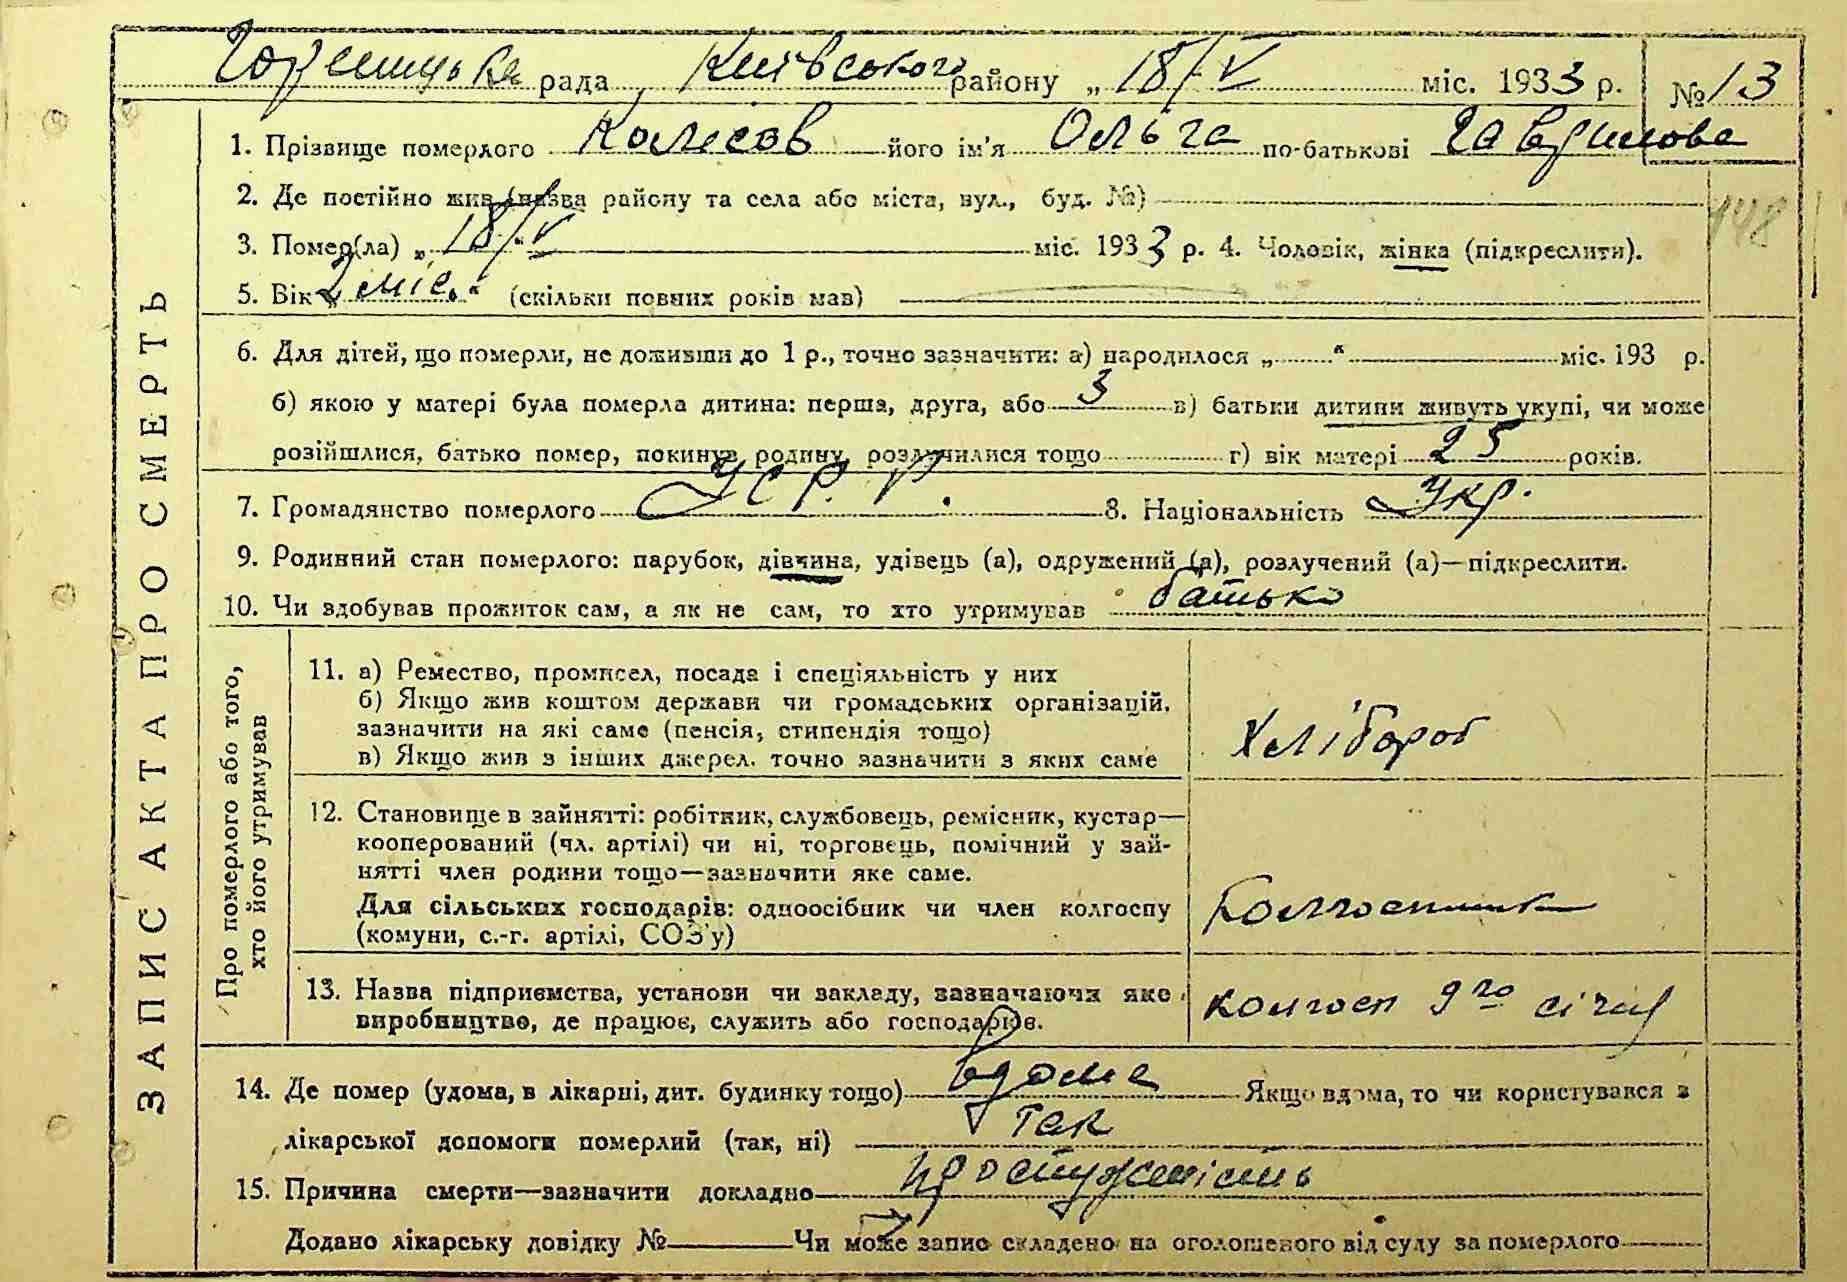 Гореницька рада Київського району „ 18/V міс. 1933 р. № 13
1. Прізвище померлого Колесов його ім'я Ольга по-батькові Гаврилова
2. Де постійно жив (назва району та села або міста, вул., буд. №)
148
3. Помер(ла) „ 18/V “ міс. 1933 р. 4. Чоловік, жінка (підкреслити).
5. Вік „ 2 міс. “ (скільки повних років мав)
6. Для дітей, що померли, не доживши до 1 р., точно зазначити: а) народилося „ “ міс. 193 р.
б) якою у матері була померла дитина: перша, друга, або 3 в) батьки дитини живуть укупі, чи може
розійшлися, батько помер, покинув родину, розлучилися тощо г) вік матері 25 років.
7. Громадянство померлого УСРР. 8. Національність Укр.
9. Родинний стан померлого: парубок, дівчина, удівець (а), одружений (а), розлучений (а)—підкреслити.
10. Чи здобував прожиток сам, а як не сам, то хто утримував батько
ЗАПИС АКТА ПРО СМЕРТЬ
Про померлого або того,
хто його утримував
11. а) Ремество, промисел, посада і спеціяльність у них
б) Якщо жив коштом держави чи громадських організацій,
зазначити на які саме (пенсія, стипендія тощо)
в) Якщо жив з інших джерел. точно зазначити з яких саме
Хлібороб
12. Становище в зайнятті: робітник, службовець, ремісник, кустар—
кооперований (чл. артілі) чи ні, торговець, помічний у зай-
нятті член родини тощо—зазначити яке саме.
Для сільських господарів: одноосібник чи член колгоспу
(комуни, с.-г. артілі, СОЗ'у)
Колгоспник
13. Назва підприємства, установи чи закладу, зазначаючи яке
виробництво, де працює, служить або господарює.
колгосп 9го січня
14. Де помер (удома, в лікарні, дит. будинку тощо) вдома Якщо вдома, то чи користувався з
лікарської допомоги померлий (так, ні) так
15. Причина смерти—зазначити докладно простужність
Додано лікарську довідку № Чи може запис складено на оголошеного від суду за померлого